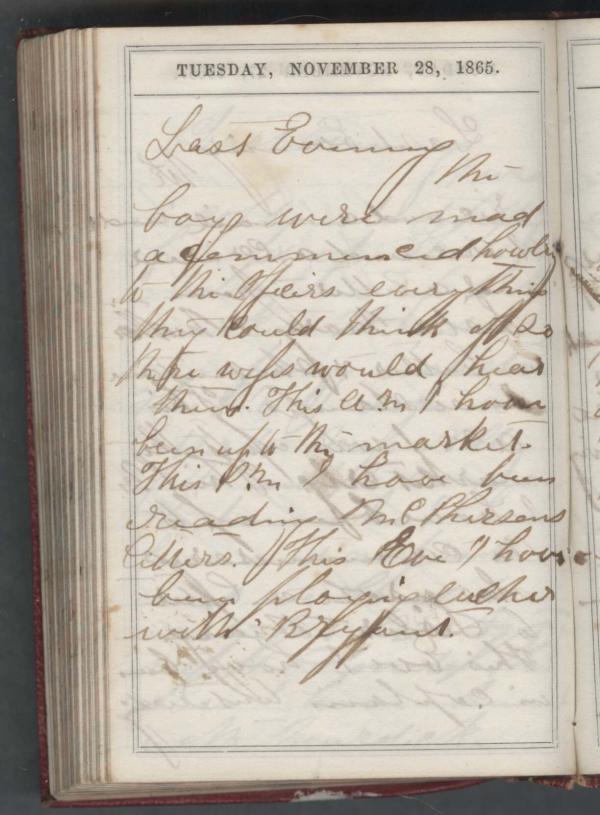 TUESDAY, NOVEMBER 28, 1865.
Last Evening
the
boys were mad
& commenced howling
to the Officers everything
they could think of so
their wifes would hear
them. This A.M I have
been up to the market.
This P.M I have been
reading McPhersons
letters. This Eve I have
been playing eucher
with Bryant.